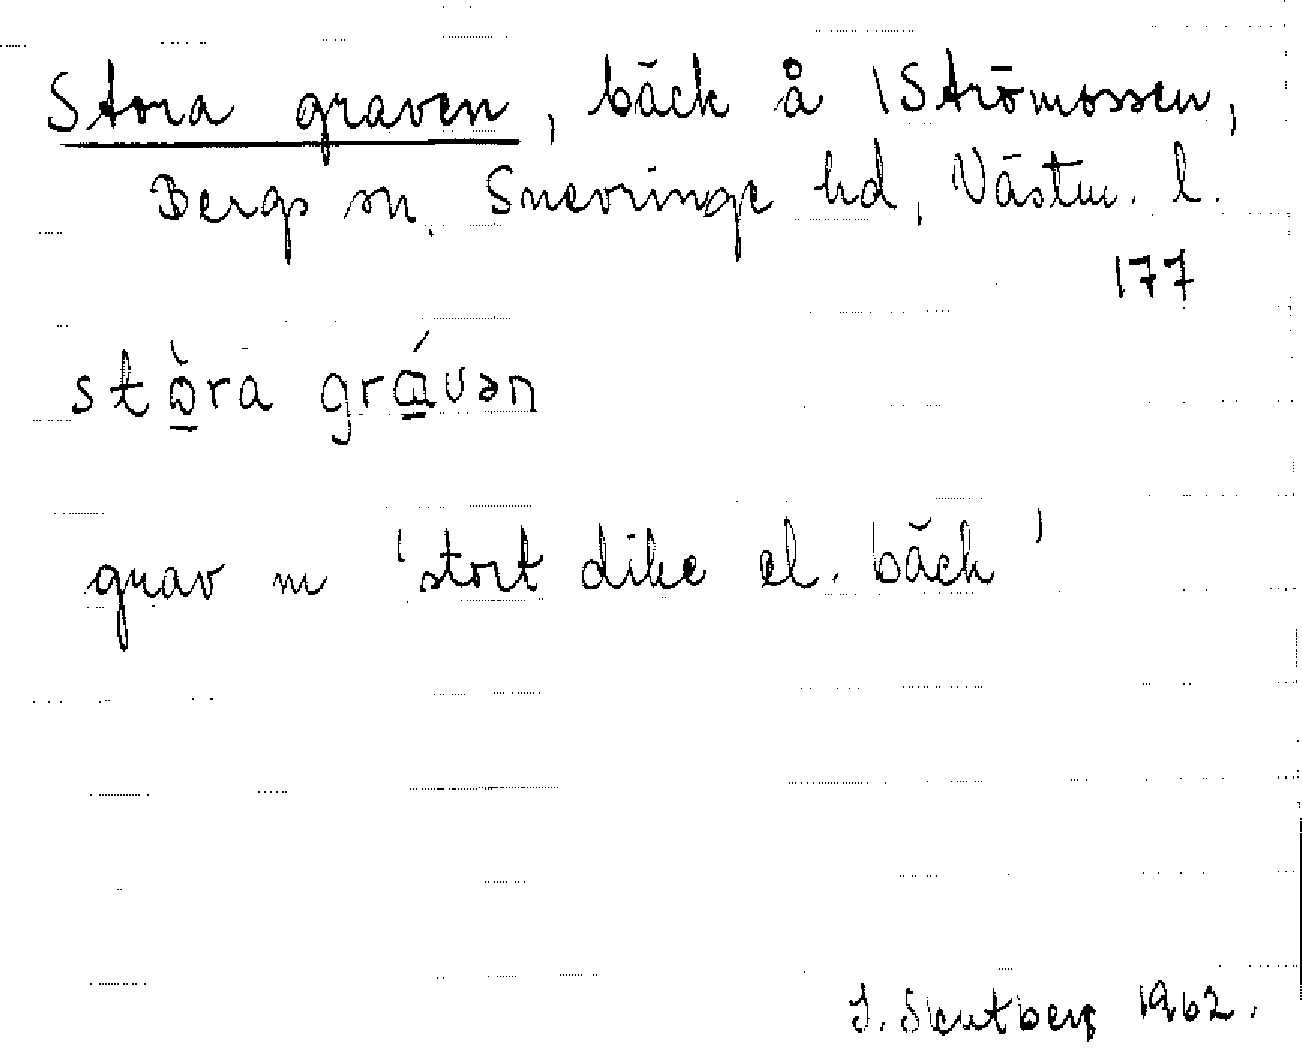 Stora graven, bäck å Strömossen,
Bergs sn, Snevringe hd, Västm. l.
177
stòra grávən
grav m 'stort dike el. bäck'
1962.